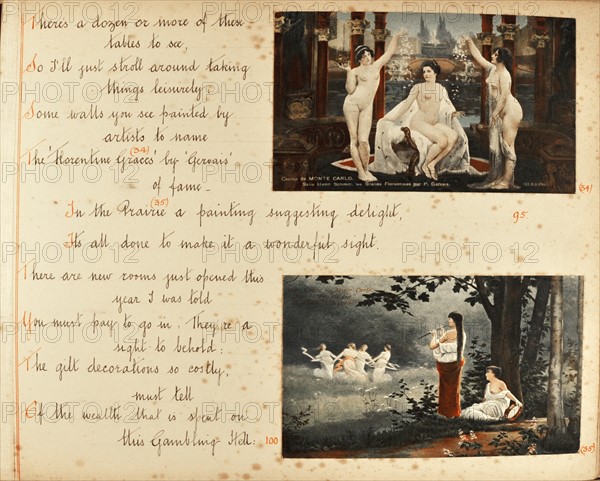 There's a dozen or more of these
tables to see,
So I'll just stroll around taking
things leisurely:
Some walls you see painted by
artists to name
(34)
The 'Florentine Graces' by 'Gervais'
of fame -
(35)
In the Prairie a painting suggesting delight,
95.
It's all done to make it a wonderful sight.
There are new rooms just opened this
year I was told
You must pay to go in. They're a
sight to behold:
The gilt decorations so costly,
must tell
Of the wealth that is spent on
this Gambling Hell:
100
Casino de MONTE CARLO.
Salle Henri Schmit, les Grâces Florentines par P. Gervais
(34)
(35)
PHOTO12